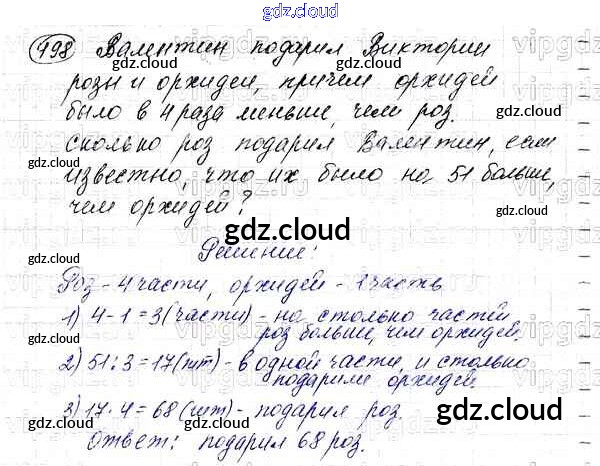 gdz.cloud
498 Валентин подарил Виктории
розы и орхидеи, причем орхидей
было в 4 раза меньше, чем роз.
сколько роз подарил Валентин, если
известно, что их было на 51 больше,
чем орхидей?
gdz.cloud
Решение:
Роз - 4 части, орхидей - 1 часть
1) 4-1=3 (части) - на столько частей
роз больше, чем орхидей.
2) 51:3=17 (шт) - в одной части, и столько
подарили орхидей
3) 17·4=68 (шт) - подарил роз
gdz.cloud
Ответ: подарил 68 роз.